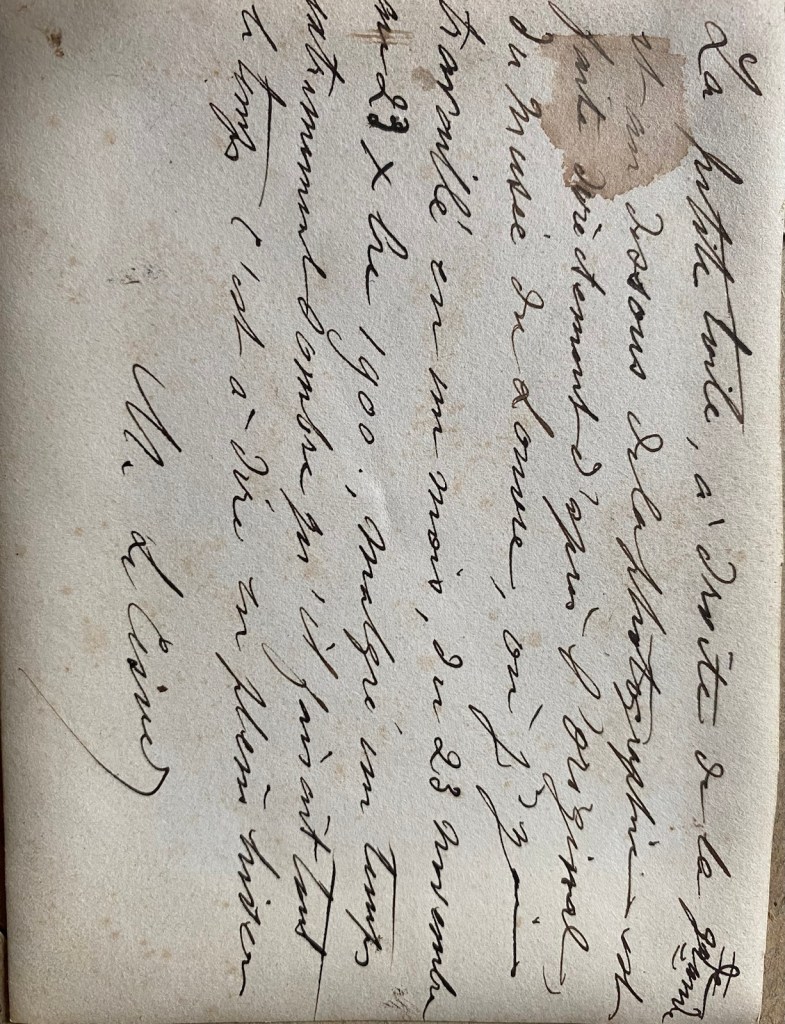 La petite toile, à droite de la gde
et au desous de la photographie est
faite directement d'après l'original
du Musée du Louvre, où j'y ai
travaillé en un mois, du 23 novembre
au 23 Xbre 1900, malgré un temps
sombre qu'il faisait tout
le temps c'est à dire en plein hiver